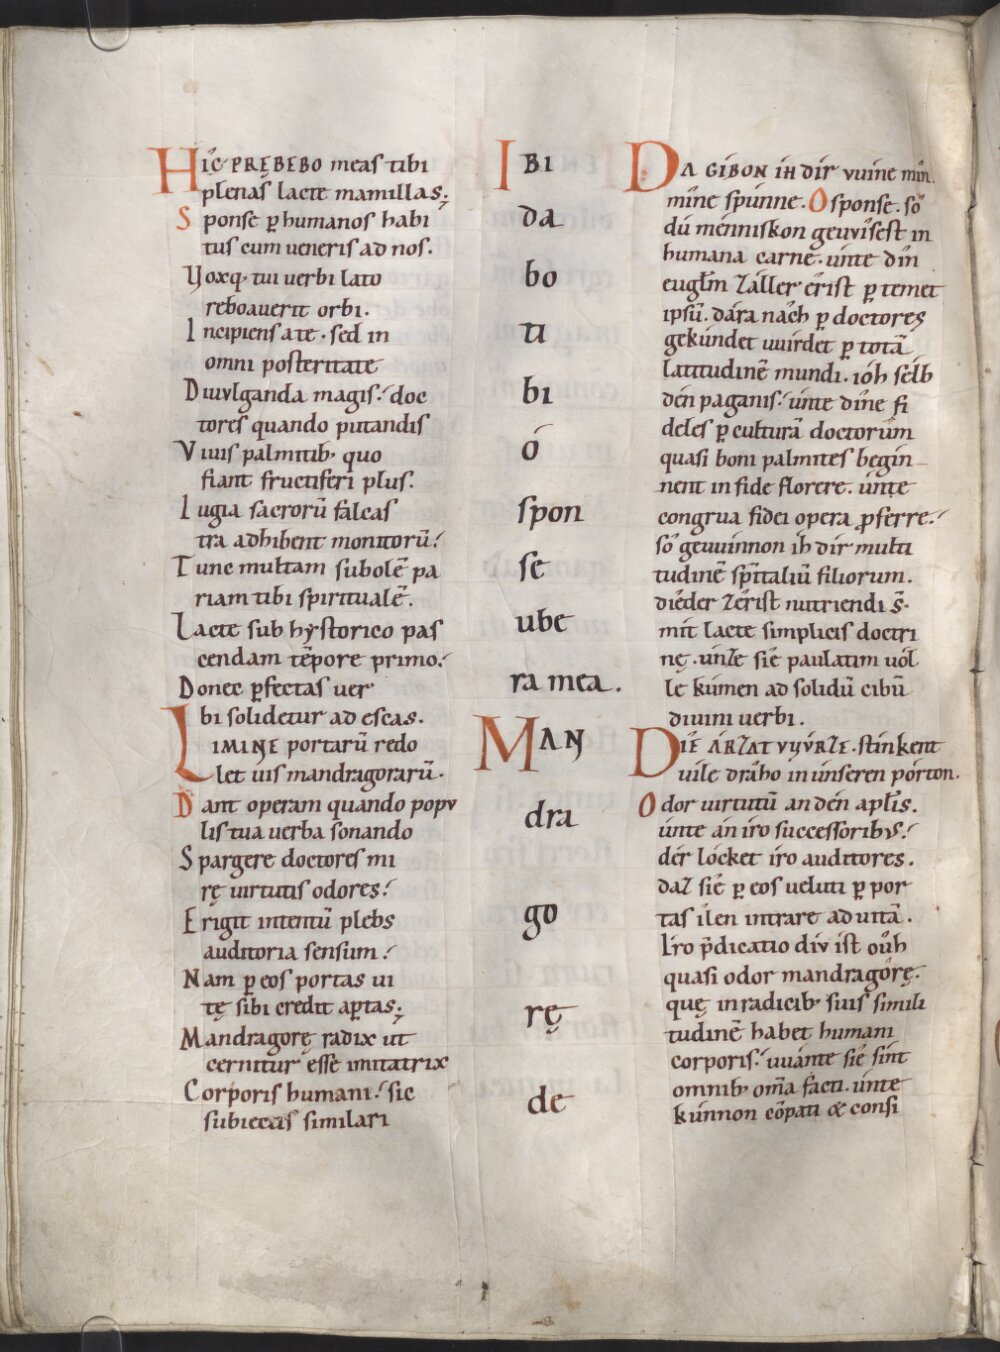 Hic PRĘBEBO meas tibi
plenas lacte mamillas;
Sponse ꝑ humanos habi
tus cum veneris ad nos.
Voxq; tui verbi lato
reboaverit orbi.
Incipiens a te. sed in
omni posteritate
Divvlganda magis. doc
tores quando putandis
Vivis palmitib; quo
fiant fructiferi plus.
Iugia sacrorū falcas
tra adhibent monitorū.
Tunc multam subolē pa
riam tibi spiritualē.
Lacte sub hystorico pas
cendam tēpore primo.
Donec ꝑfectas ver
bi solidetur ad escas.
LIMINE portarū redo
let vis mandragorarū.
Dant operam quando popv
lis tua verba sonando
Spargere doctores mi
rę virtutis odores.
Erigit intentū plebs
auditoria sensum.
Nam ꝑ eos portas vi
tę sibi credit aꝑtas;
Mandragorę radix ut
cernitur esse imitatrix
Corporis humani. sic
subiectis similari
IBI
da
bo
ti
bi
ó
spon
se
ube
ra mea.
MAN
dra
go
rę
de
DA GIBON IH dir vuine min.
mine spunne. O sponse. so
dú menniskon geuvisest in
humana carne. unte din
eugłm zaller érist ꝑ temet
ipsū. dára nách ꝑ doctores
gekúndet uuirdet ꝑ totā
latitudinē mundi. ióh selb
dén paganis. unte dine fi
deles ꝑ culturā doctorum
quasi boni palmites begin
nent in fide florere. unte
congrua fidei opera ꝓferre.
so geuuinnon ih dir multi
tudinē spītaliū filiorum.
diéder zérist nutriendi s̄.
mit lacte simplicis doctri
nę. unze sié paulatim uól
le kúmen ad solidū cibū
divini verbi.
DIE ÁRZAT VVÚRZE. stinkent
vile drấho in únseren pórton.
Odor virtutū an dén apłis.
unte án iro successoribvs.
dér lócket iro auditores.
daz sié ꝑ eos veluti ꝑ por
tas ilen intrare ad vitā.
Iro p̄dicatio div ist oúh
quasi odor mandragorę.
quę in radicib; suis simili
tudinē habet humani
corporis. uuánte sié sint
omnib; om̄a facti. únte
kúnnon cōpati & consi